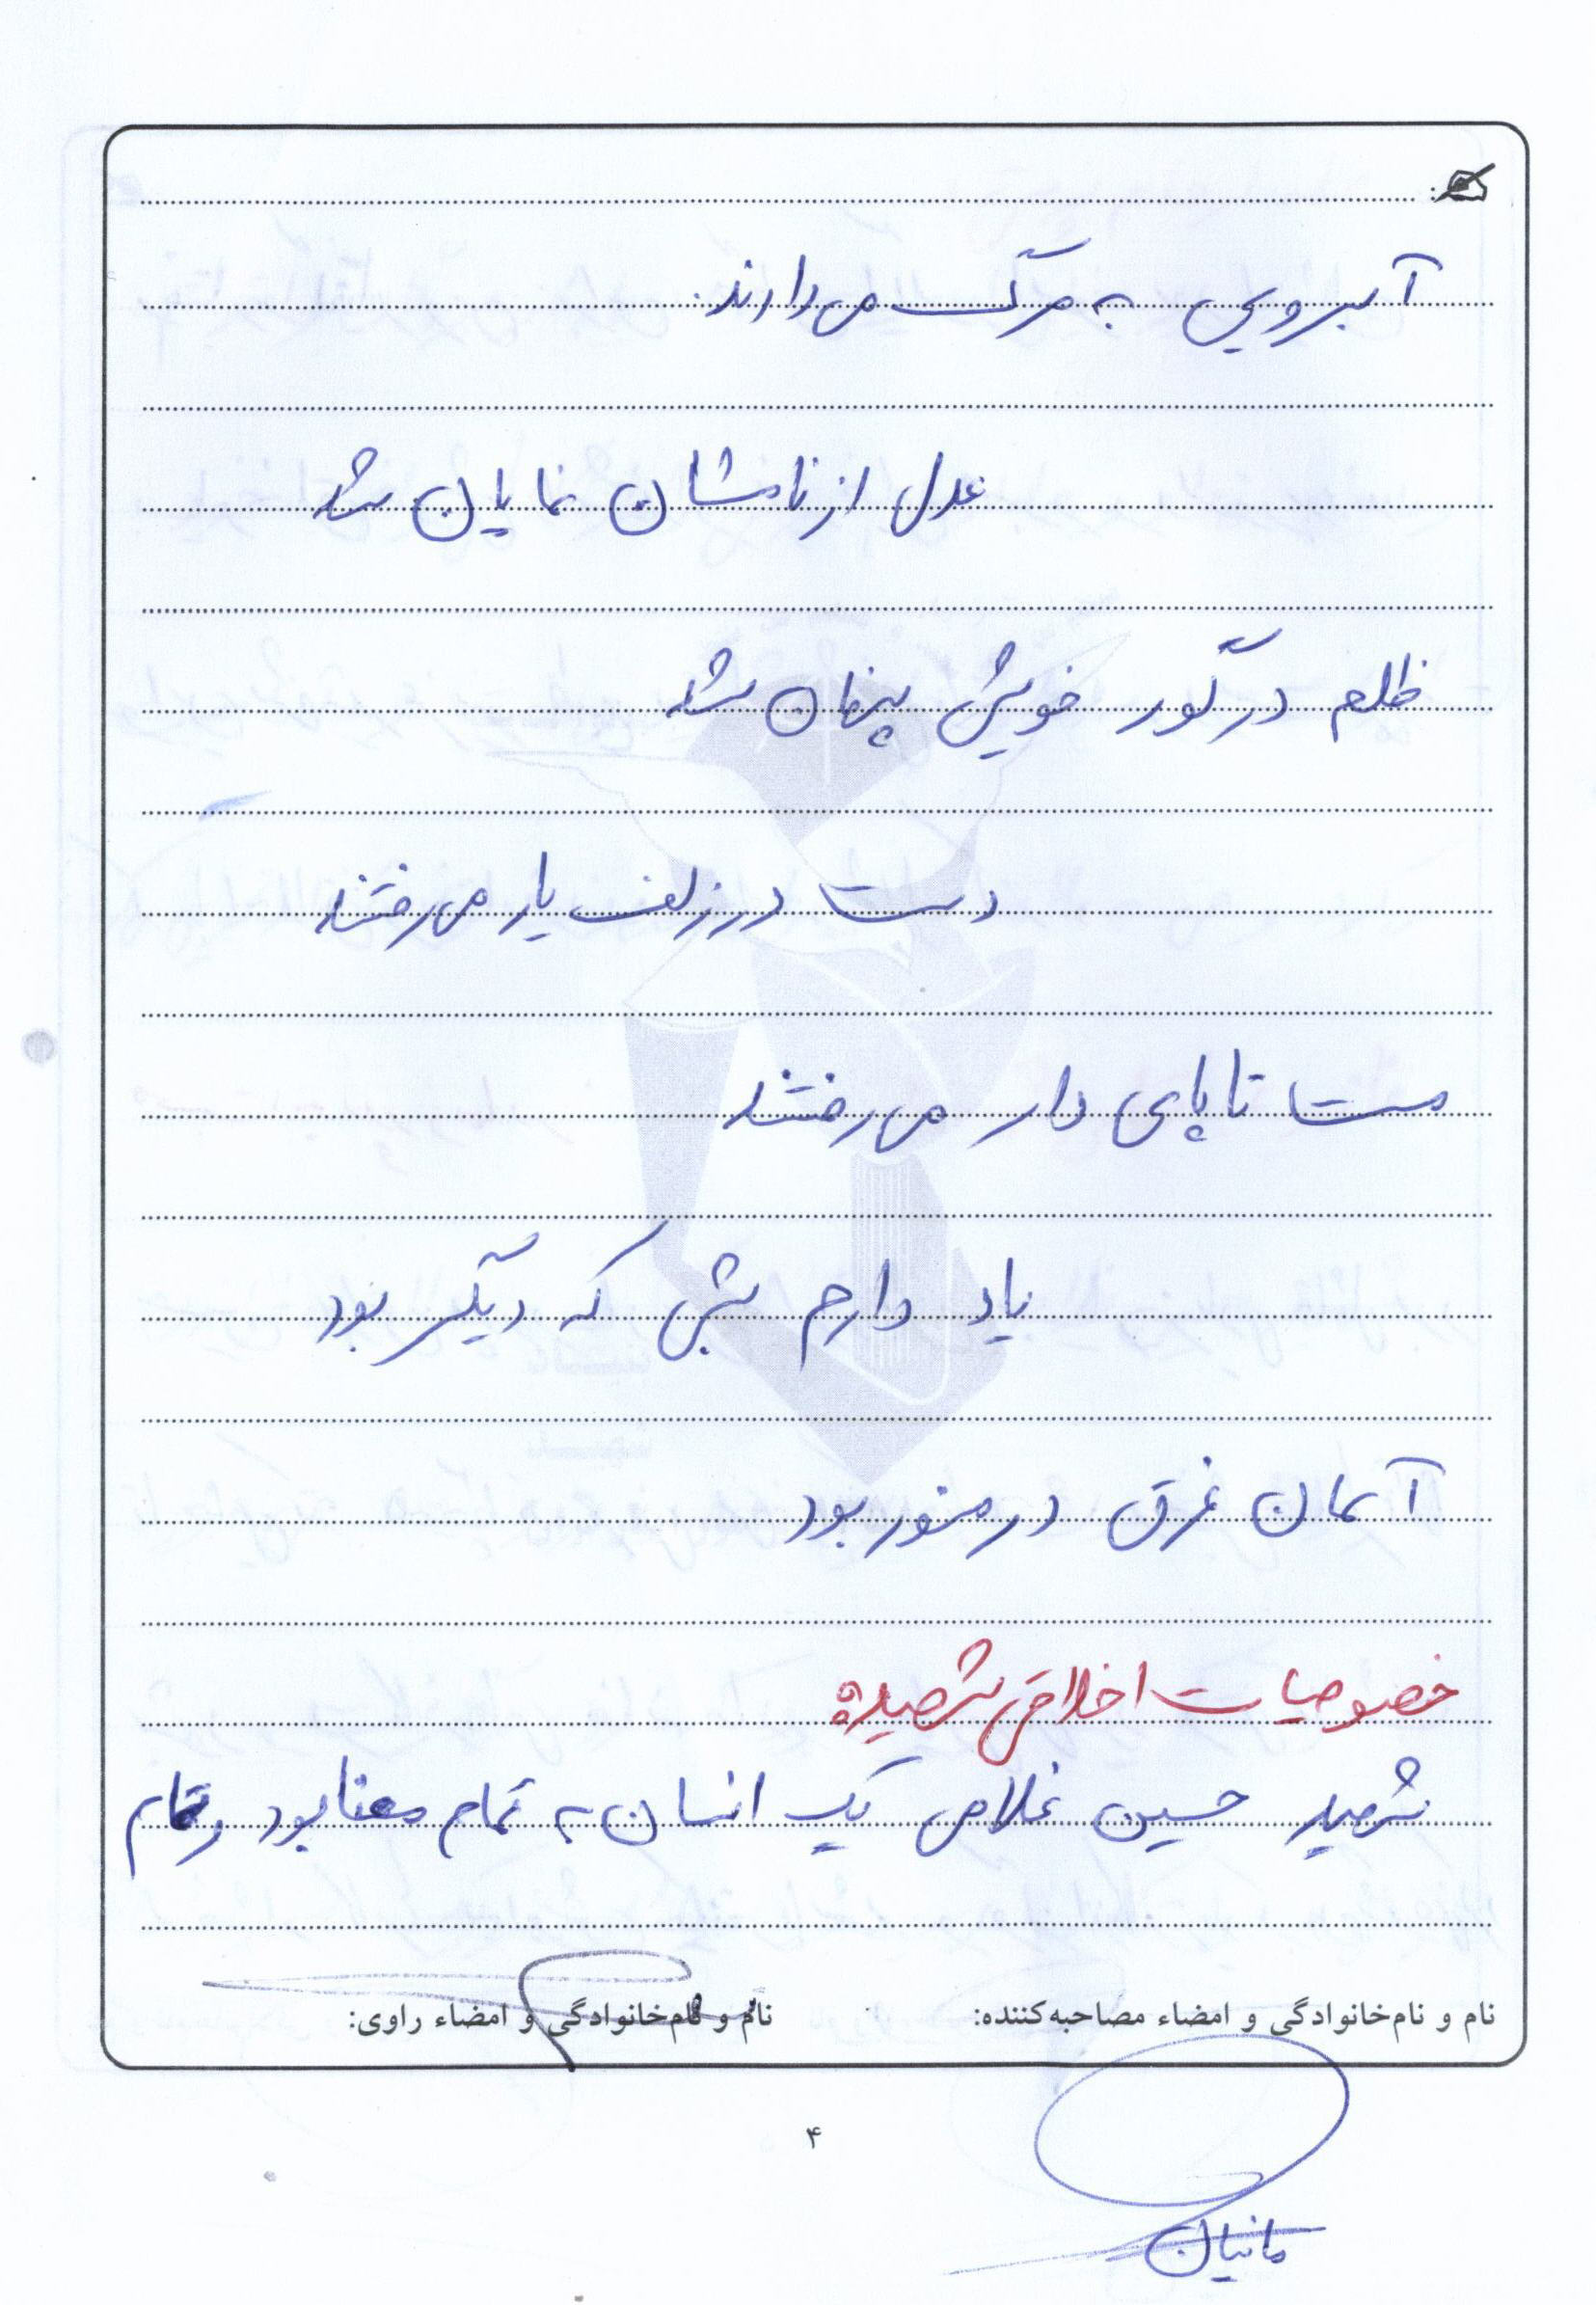 آبرویی به مرگ می‌دارند.
عدل از نامشان نمایان شد
ظلم در گور خویش پنهان شد
دست در زلف یار می‌رفتند
مست تا پای دار می‌رفتند
یاد دارم شبی که دیگر بود
آسمان غرق در منور بود
خصوصیات اخلاقی شهید:
شهید حسین غلامی یک انسان به تمام معنا بود و تمام
نام و نام‌خانوادگی و امضاء مصاحبه‌کننده:
نام و نام‌خانوادگی و امضاء راوی:
۴
مانیان